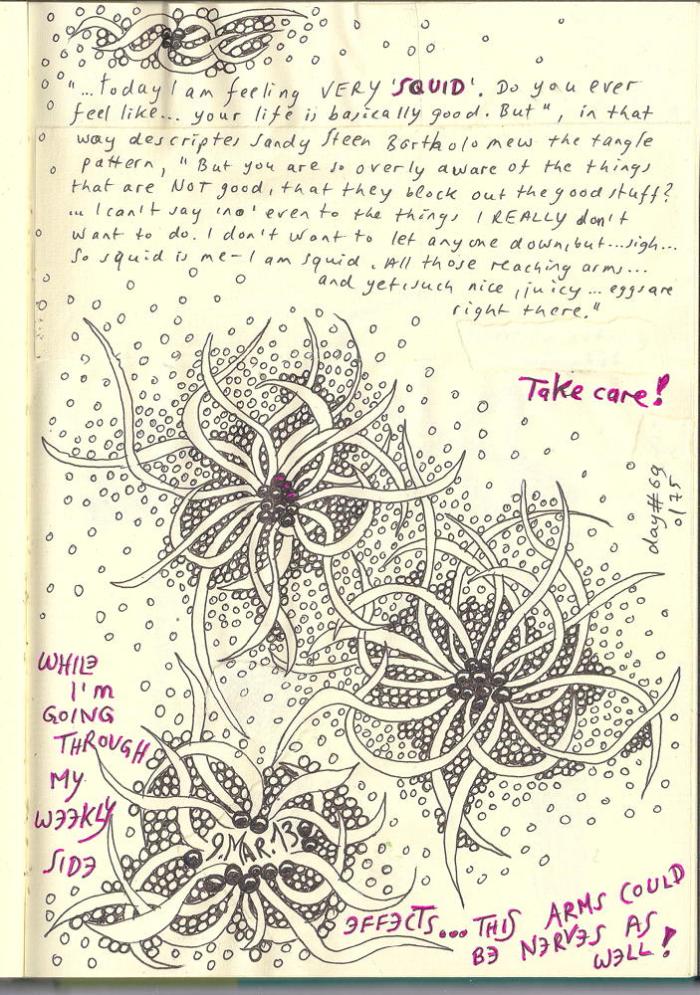 "...today I am feeling VERY 'SQUID'. Do you ever
feel like... your life is basically good. But", in that
way descriptes Sandy Steen Bartholomew the tangle
pattern, "But you are so overly aware of the things
that are NOT good, that they block out the good stuff?
... I can't say 'no' even to the things I REALLY don't
want to do. I don't want to let anyone down, but...sigh...
So squid is me - I am squid. All those reaching arms...
and yet, such nice, juicy ... eggs are
right there."
Take care!
day#69
0/75
WHILE
I'm
GOING
THROUGH
MY
WEEKLY
SIDE
9.MAR.13
EFFECTS... THIS ARMS COULD
BE NERVES AS
WELL!